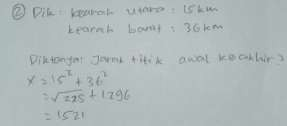 ② Dik : kearah utara : 15 km
kearah barat : 36 km
Diktanya : Jarak titik awal ke akhir ?
x = 15² + 36²
= √225 + 1296
= 1521